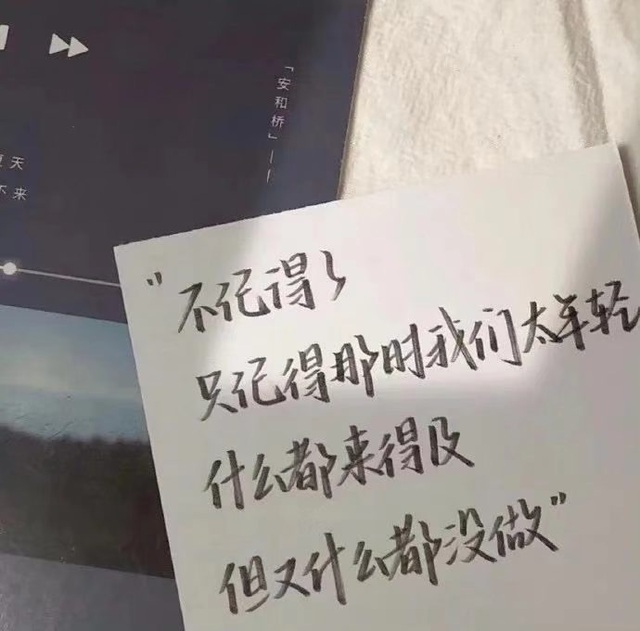 「安和桥」——
夏天
不来
"不记得了
只记得那时我们太年轻
什么都来得及
但又什么都没做"